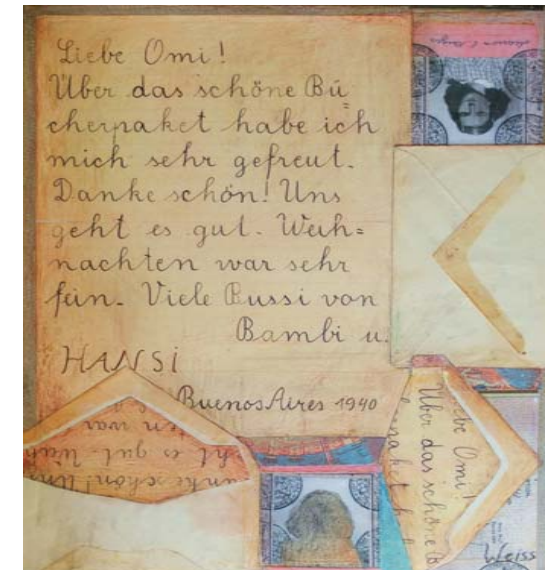 Liebe Omi!
Über das schöne Bü=
cherpaket habe ich
mich sehr gefreut.
Danke schön! Uns
geht es gut. Weih=
nachten war sehr
fein. Viele Bussi von
Bambi u.
HANSi
Buenos Aires 1940
ten war
ht es gut. Weih
nke schön! Uns
ebe Omi!
Über das schöne B
paket h
Weiss